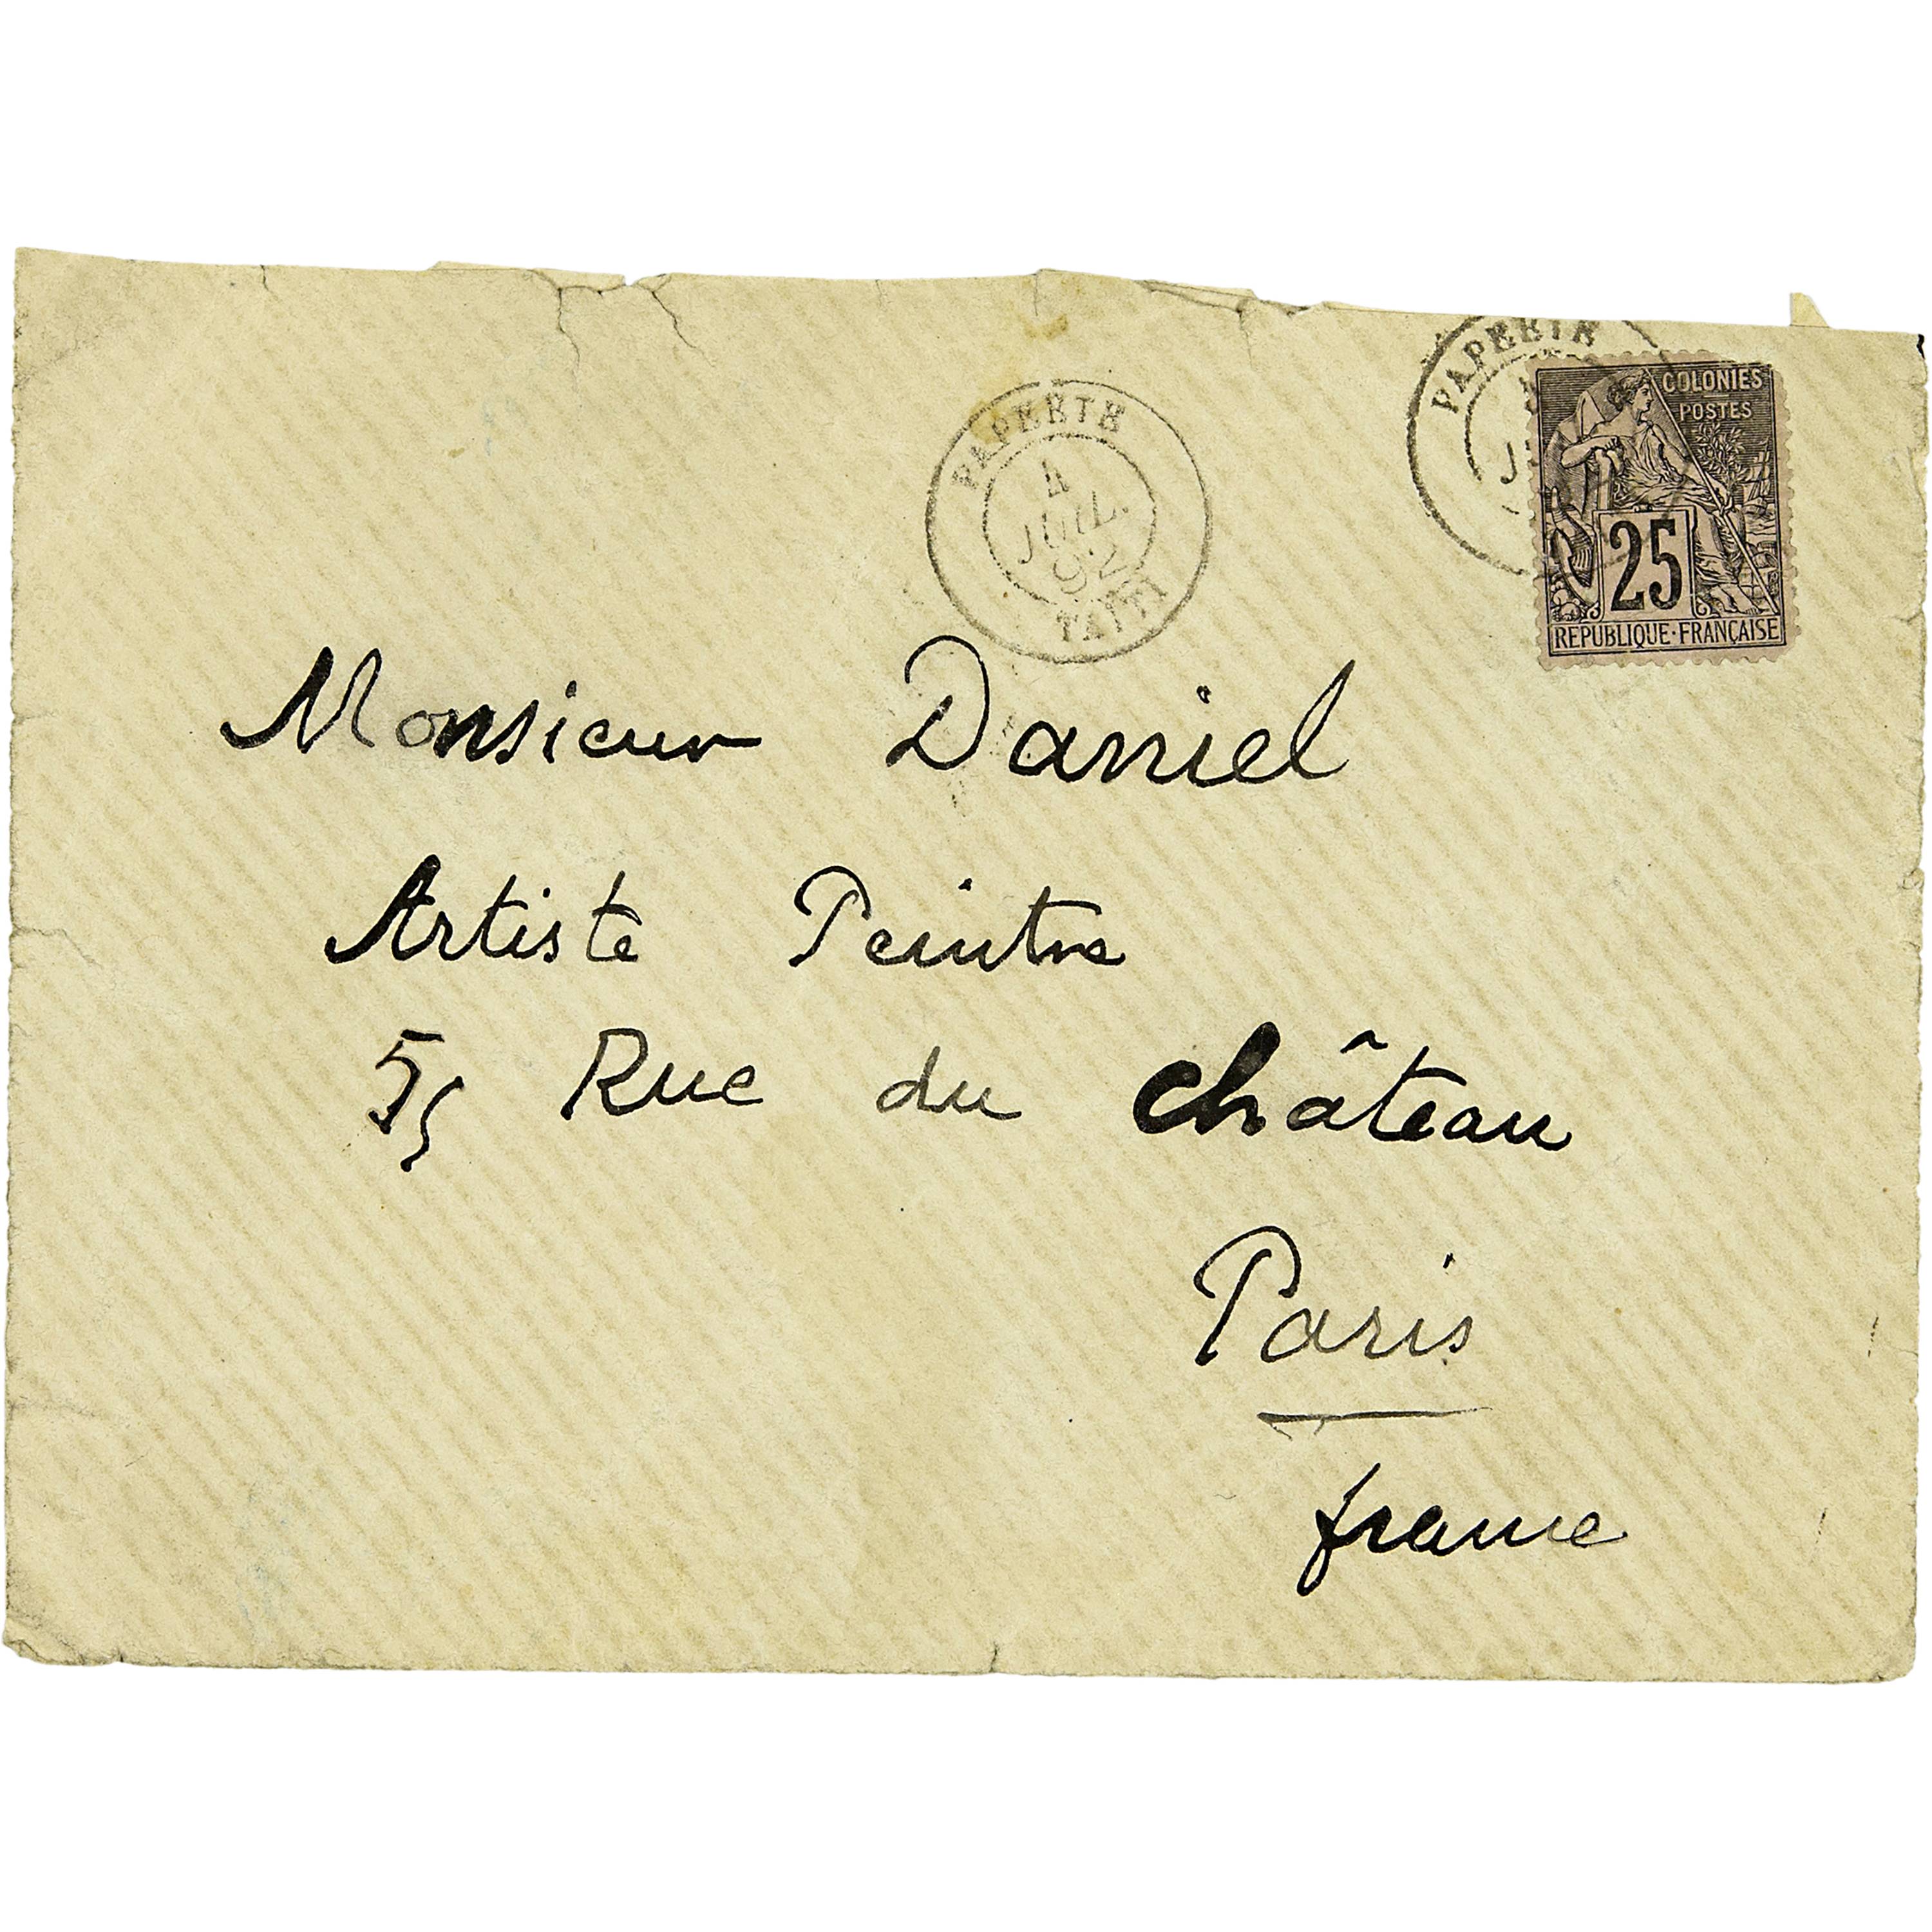 PAPEETE
4
JUIL.
92
TAITI
PAPEETE
COLONIES
POSTES
25
REPUBLIQUE·FRANÇAISE
Monsieur Daniel
Artiste Peintre
55 Rue du château
Paris
france